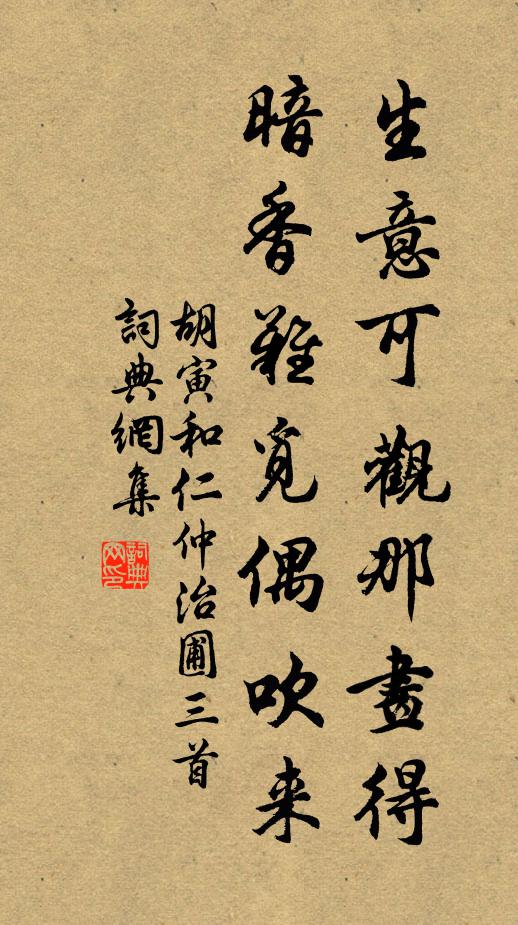 生意可觀那畫得
暗香難覓偶吹来
胡寅和仁仲治圃三首
詞典網集
詞典网印